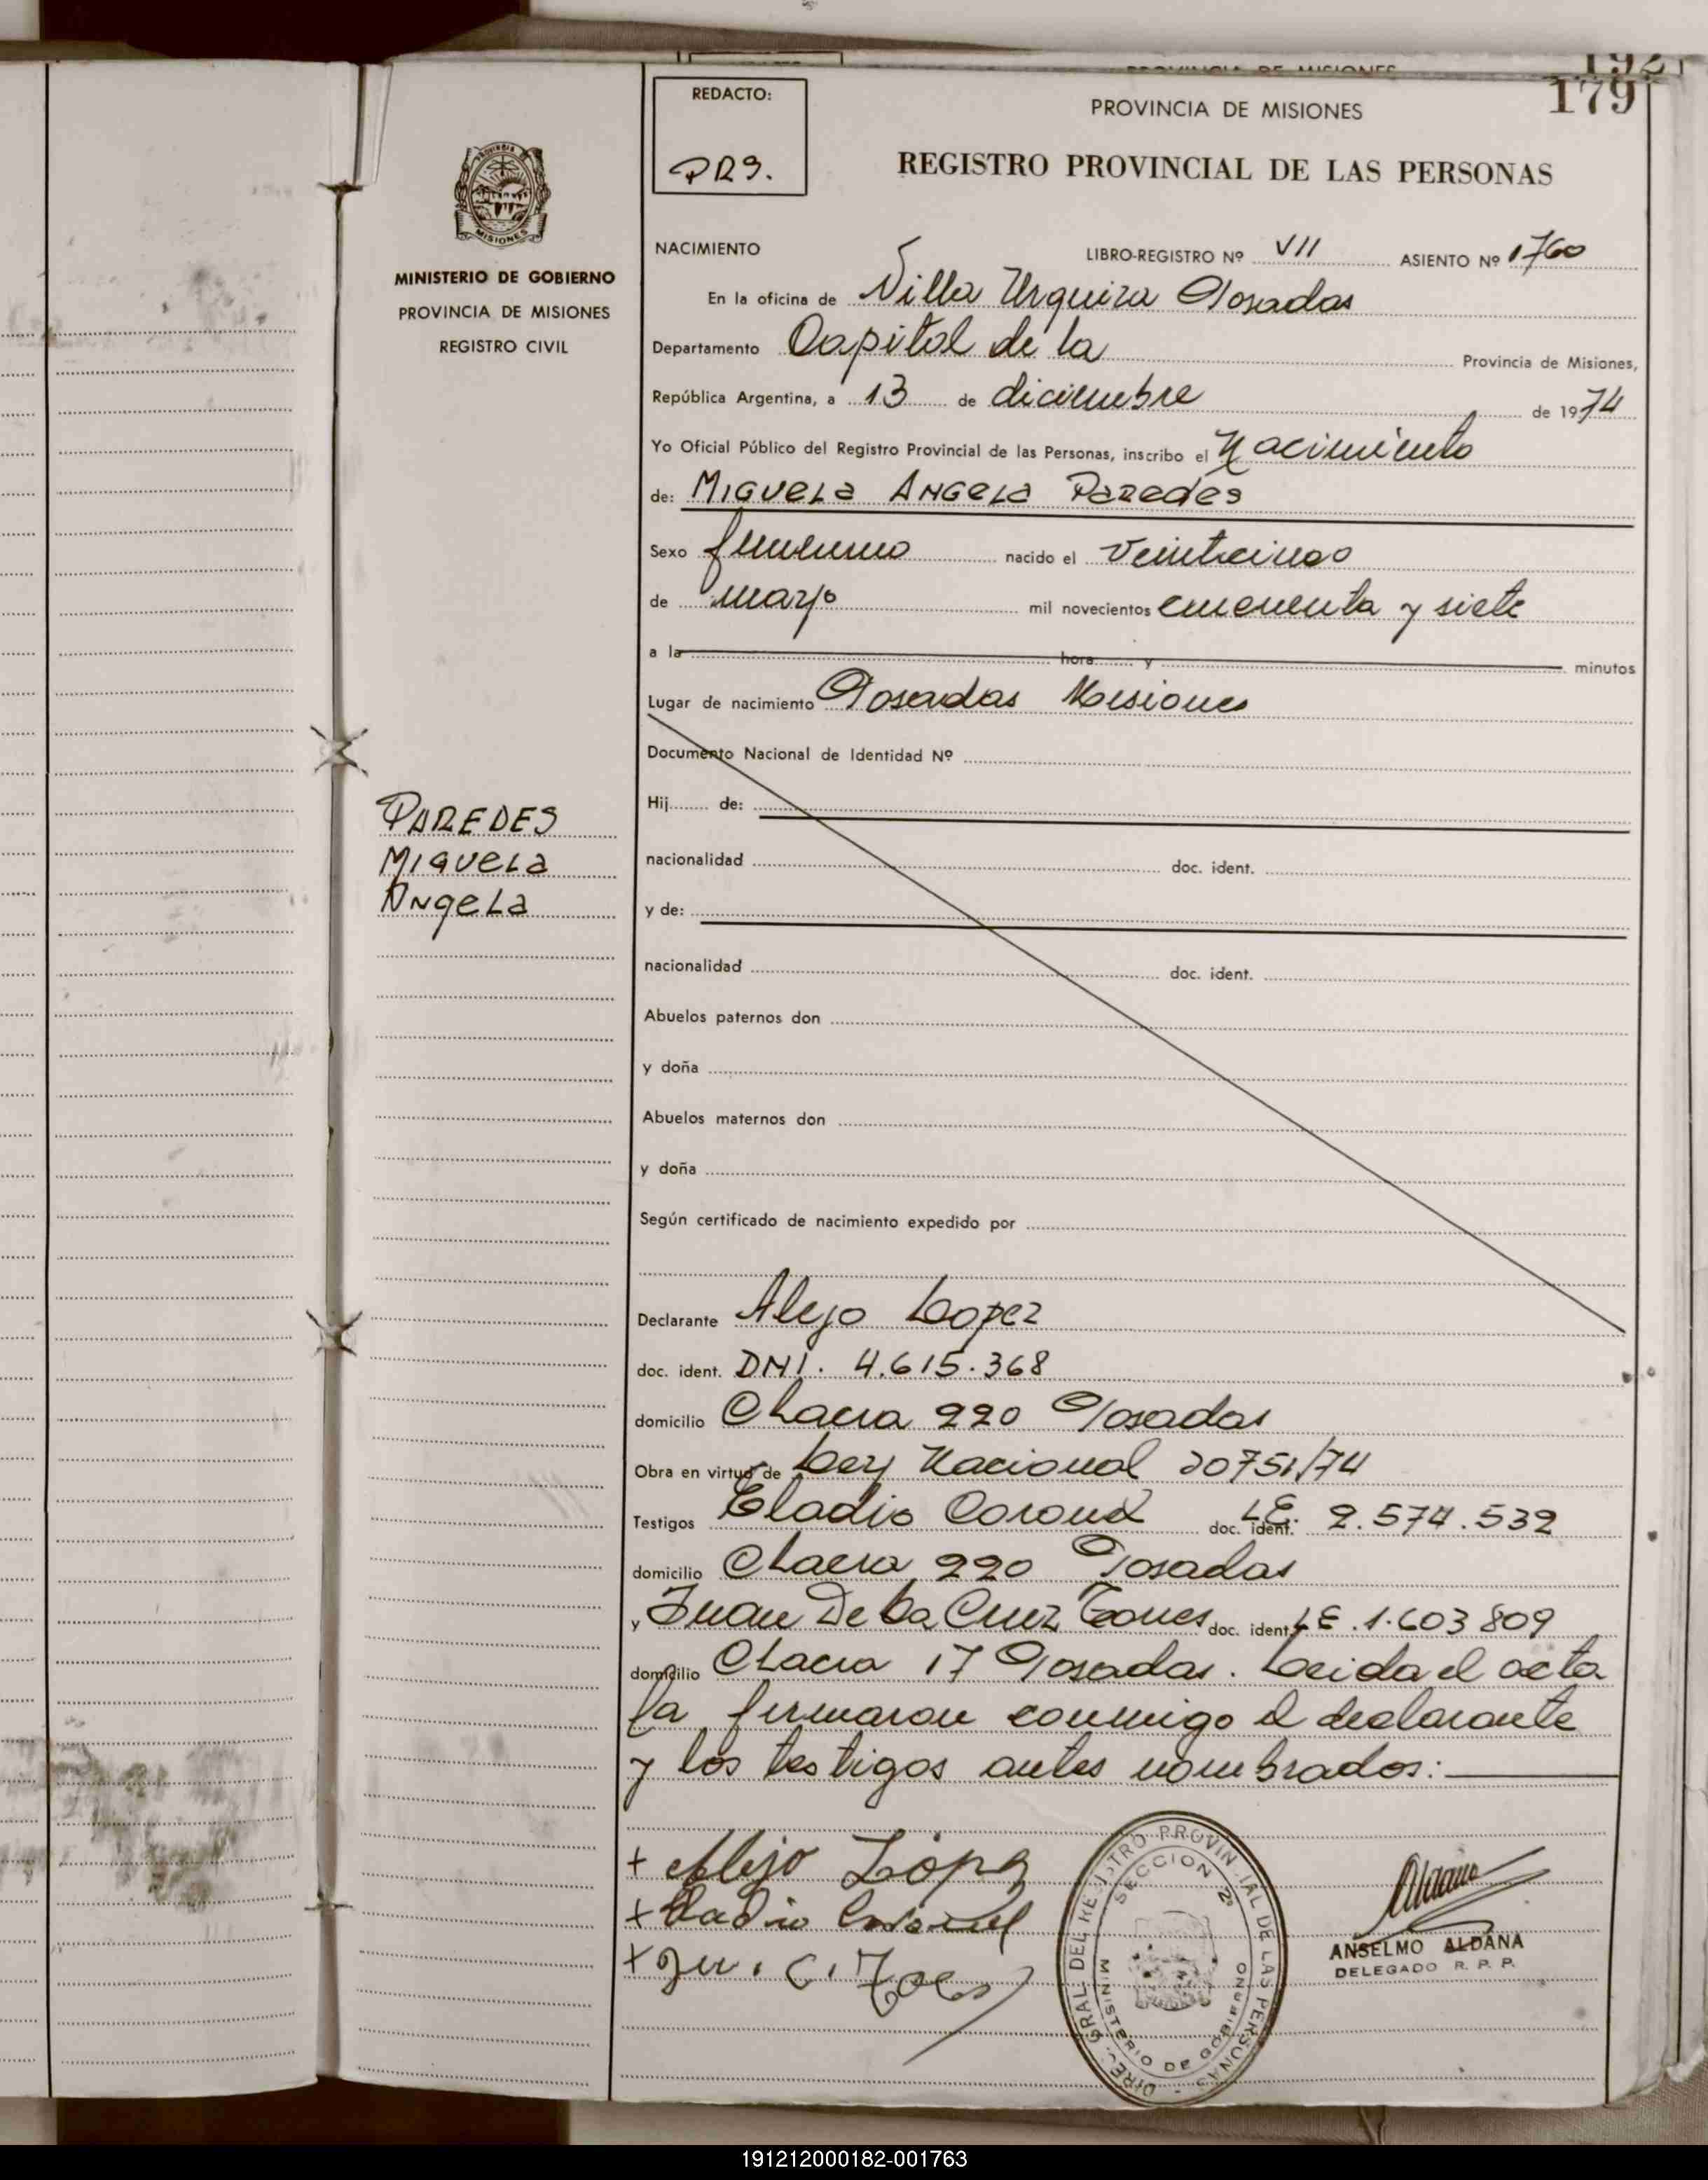 192
179
REDACTO:
PROVINCIA DE MISIONES
REGISTRO PROVINCIAL DE LAS PERSONAS
MISIONES
MINISTERIO DE GOBIERNO
PROVINCIA DE MISIONES
REGISTRO CIVIL
NACIMIENTO LIBRO-REGISTRO Nº VII ASIENTO Nº 1760
En la oficina de Villa Urquiza Posadas
Departamento Capital de la Provincia de Misiones,
República Argentina, a 13 de diciembre de 1974
Yo Oficial Público del Registro Provincial de las Personas, inscribo el Nacimiento
de: Miguela Angela Paredes
Sexo femenino nacido el veinticinco
de mayo mil novecientos cincuenta y siete
a la hora y minutos
Lugar de nacimiento Posadas Misiones
Documento Nacional de Identidad Nº
Hij de:
nacionalidad doc. ident.
y de:
nacionalidad doc. ident.
Abuelos paternos don
y doña
Abuelos maternos don
y doña
Según certificado de nacimiento expedido por
PAREDES
Miguela
Angela
Declarante Alejo Lopez
doc. ident. DNI. 4.615.368
domicilio Chacra 220 Posadas
Obra en virtud de Ley Nacional 20751/74
Testigos Eladio Coronel doc. ident. LE. 2.574.532
domicilio Chacra 220 Posadas
y Juan De La Cruz Torres doc. ident. LE. 1.603809
domicilio Chacra 17 Posadas. Leida el acta
la firmaron conmigo el declarante
y los testigos antes nombrados:
+ Alejo López
+ Eladio Coronel
+
DIREC. GRAL. DEL REGISTRO PROVINCIAL DE LAS PERSONAS
SECCION 2ª
MINISTERIO DE GOBIERNO
Aldana
ANSELMO ALDANA
DELEGADO R. P. P.
191212000182-001763